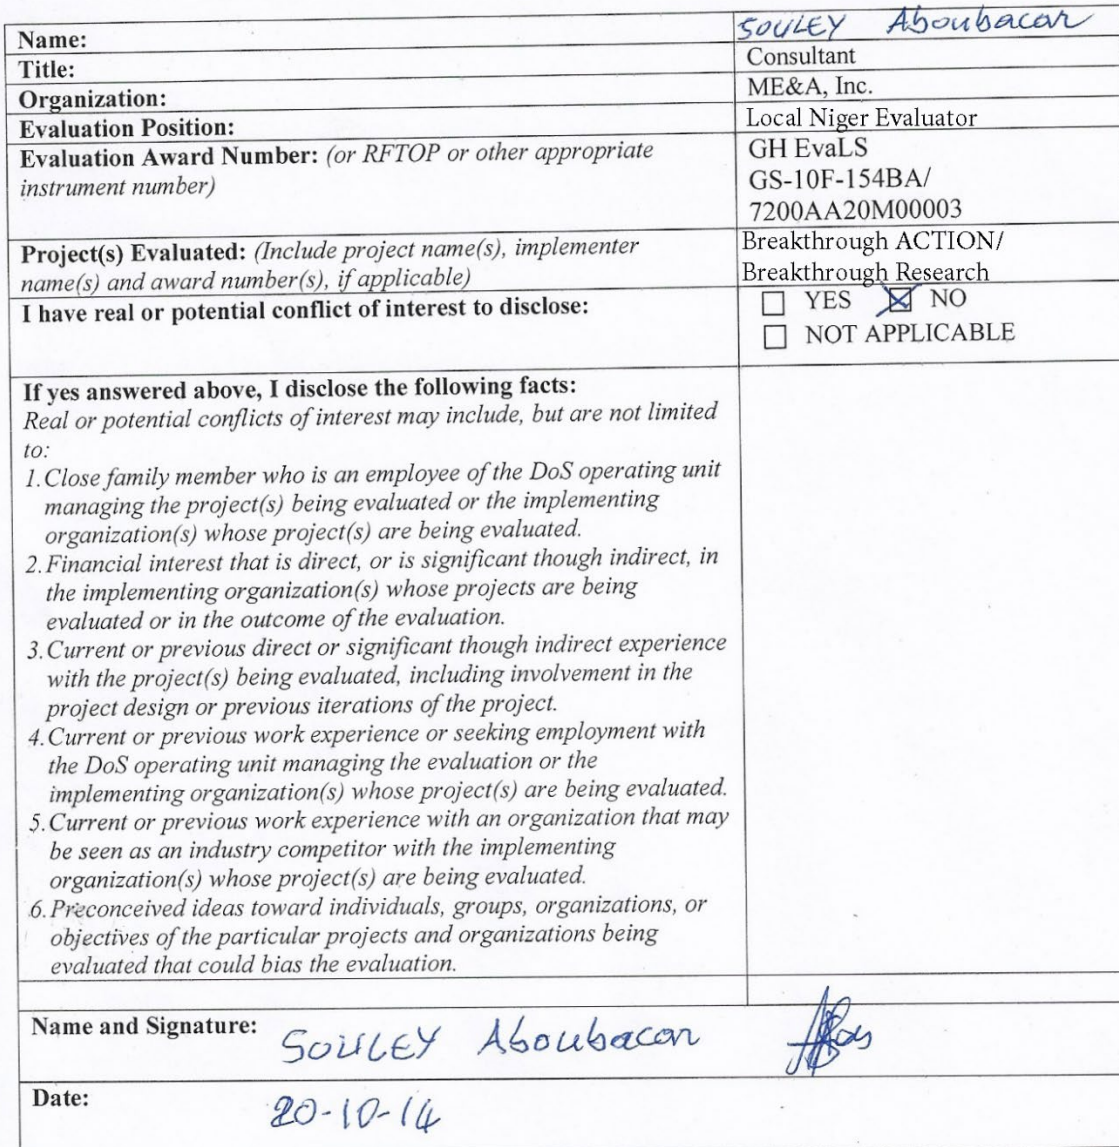 Name: SOULEY Aboubacar
Title: Consultant
Organization: ME&A, Inc.
Evaluation Position: Local Niger Evaluator
Evaluation Award Number: (or RFTOP or other appropriate
instrument number)
GH EvaLS
GS-10F-154BA/
7200AA20M00003
Project(s) Evaluated: (Include project name(s), implementer
name(s) and award number(s), if applicable)
Breakthrough ACTION/
Breakthrough Research
I have real or potential conflict of interest to disclose:
☐ YES ☒ NO
☐ NOT APPLICABLE
If yes answered above, I disclose the following facts:
Real or potential conflicts of interest may include, but are not limited
to:
1. Close family member who is an employee of the DoS operating unit
managing the project(s) being evaluated or the implementing
organization(s) whose project(s) are being evaluated.
2. Financial interest that is direct, or is significant though indirect, in
the implementing organization(s) whose projects are being
evaluated or in the outcome of the evaluation.
3. Current or previous direct or significant though indirect experience
with the project(s) being evaluated, including involvement in the
project design or previous iterations of the project.
4. Current or previous work experience or seeking employment with
the DoS operating unit managing the evaluation or the
implementing organization(s) whose project(s) are being evaluated.
5. Current or previous work experience with an organization that may
be seen as an industry competitor with the implementing
organization(s) whose project(s) are being evaluated.
6. Preconceived ideas toward individuals, groups, organizations, or
objectives of the particular projects and organizations being
evaluated that could bias the evaluation.
Name and Signature: SOULEY Aboubacar
Date: 20-10-14